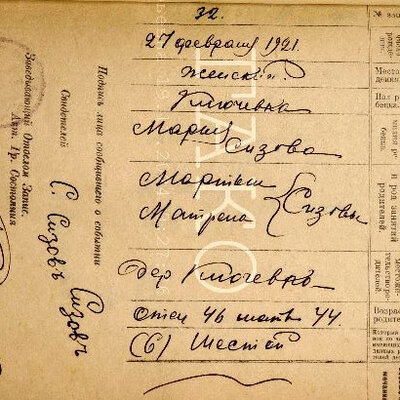 32.
27 февраля 1921.
Женский.
Ключевка
Мария
Сизова
Мартын
Матрена
Сизовы
дер Ключевка
Отец 46 мать 44.
(6) Шестой
Подпись лица сообщившего о событии
Свидетелей
С. Сизовъ
Сизовъ
Заведывающий Отделом Запис.
Акт. Гр. Состояния
ГАКО
№ 
Место
Пол р
бенка.
и род занятий
родителей.